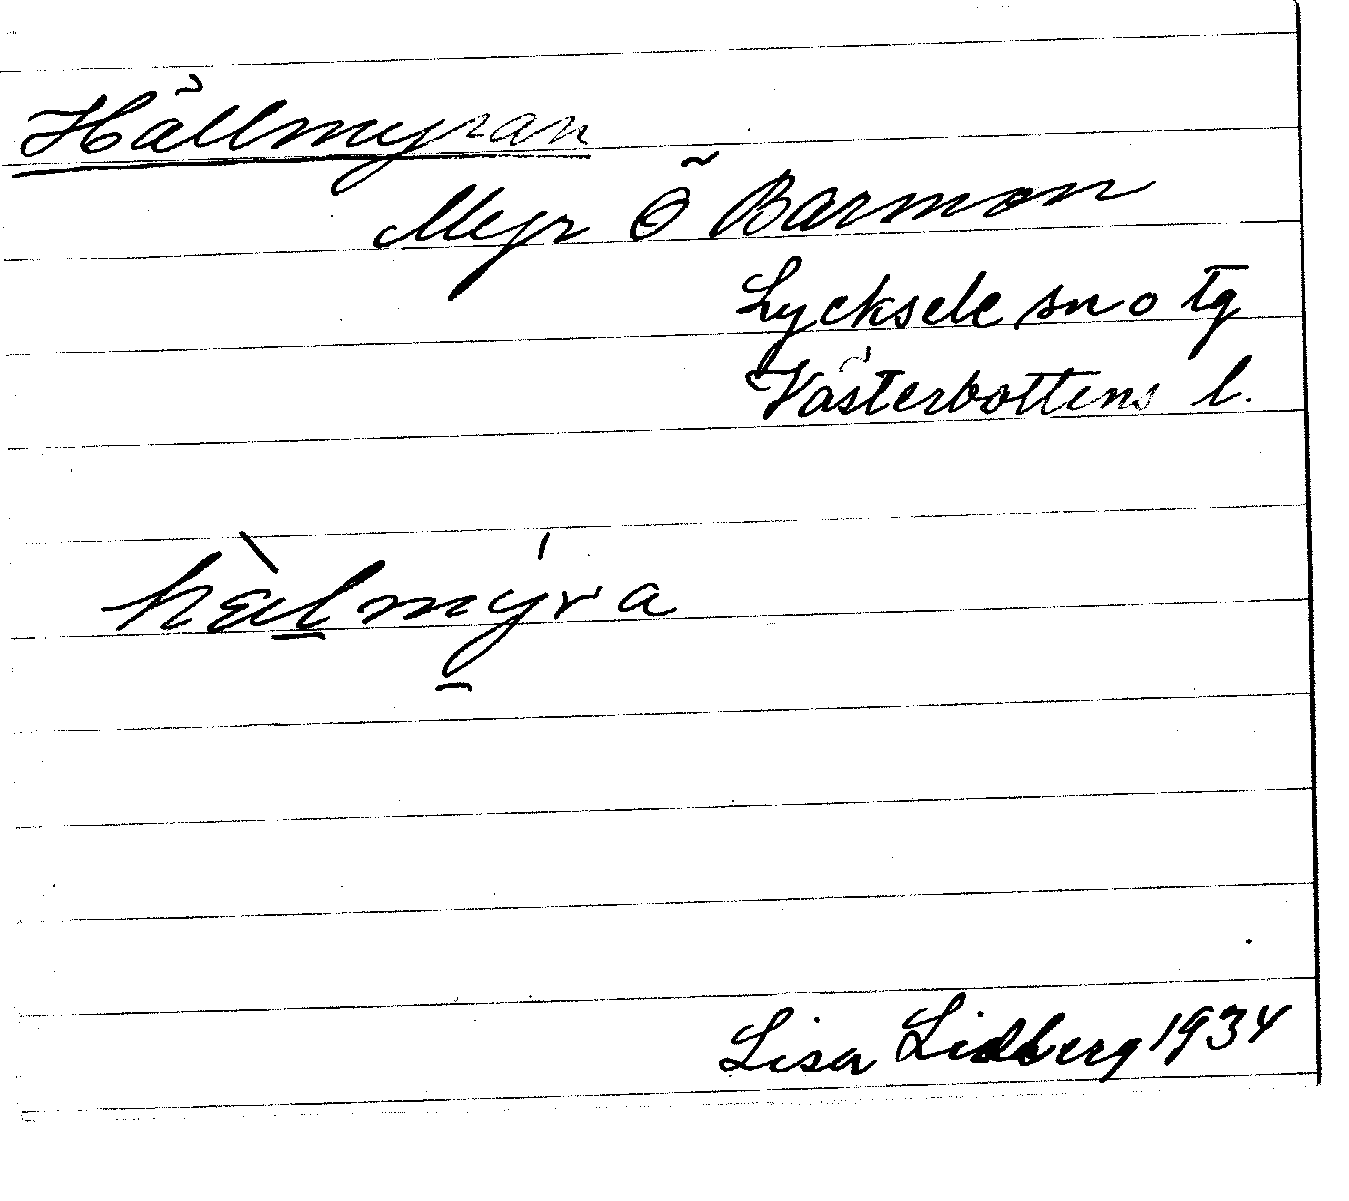 Hällmyran
Myr Ö Barmon
Lycksele sn o tg
Västerbottens l.
hæ̀lmýra
Lisa Lidberg 1934